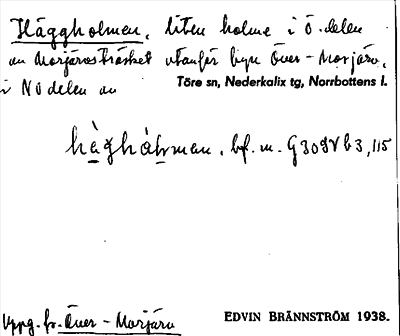 Häggholmen, liten holme i Ö.delen
av Morjärvsträsket utanför byn Över-Morjärv,
i NO delen av Töre sn, Nederkalix tg, Norrbottens l.
hàghàḷman, bf. m. G3098 b3, 115
Uppg. fr. Över-Morjärv
EDVIN BRÄNNSTRÖM 1938.